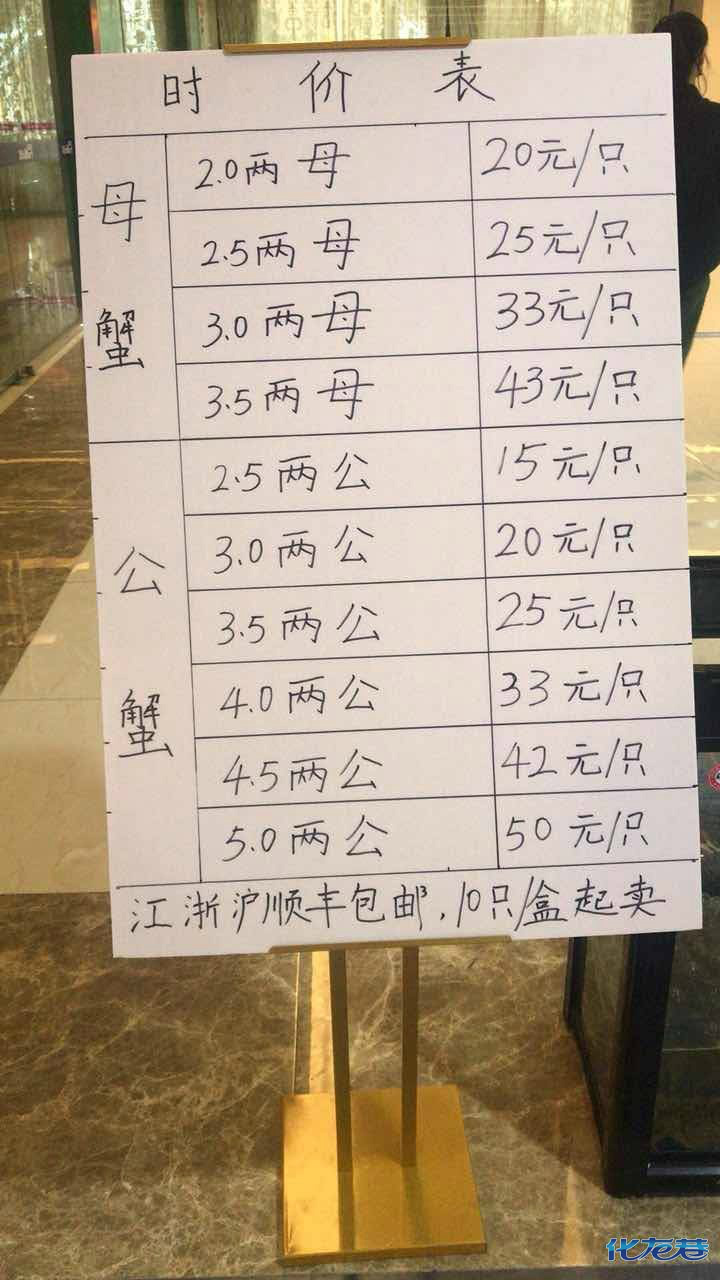 时价表
母蟹
2.0两母 20元/只
2.5两母 25元/只
3.0两母 33元/只
3.5两母 43元/只
公蟹
2.5两公 15元/只
3.0两公 20元/只
3.5两公 25元/只
4.0两公 33元/只
4.5两公 42元/只
5.0两公 50元/只
江浙沪顺丰包邮,10只/盒起卖
化龙巷